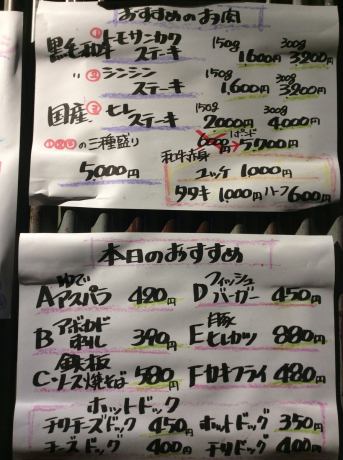 おすすめのお肉
黒毛和牛 ①トモサンカク ステーキ 150g 1,600円 300g 3,200円
〃 ②シンシン ステーキ 150g 1,600円 300g 3,200円
国産 ③ヒレ ステーキ 150g 2,000円 300g 4,000円
①②③の三種盛り 5,000円 1ポンド 5,700円
和牛赤身
ユッケ 1,000円
タタキ 1,000円 ハーフ 600円
本日のおすすめ
A ゆでアスパラ 420円 D フィッシュバーガー 450円
B アボカド刺し 390円 E 豚ヒレカツ 880円
C 鉄板ソース焼そば 580円 F カキフライ 480円
ホットドック
チリチーズドック 450円 ホットドック 350円
チーズドック 400円 チリドック 400円